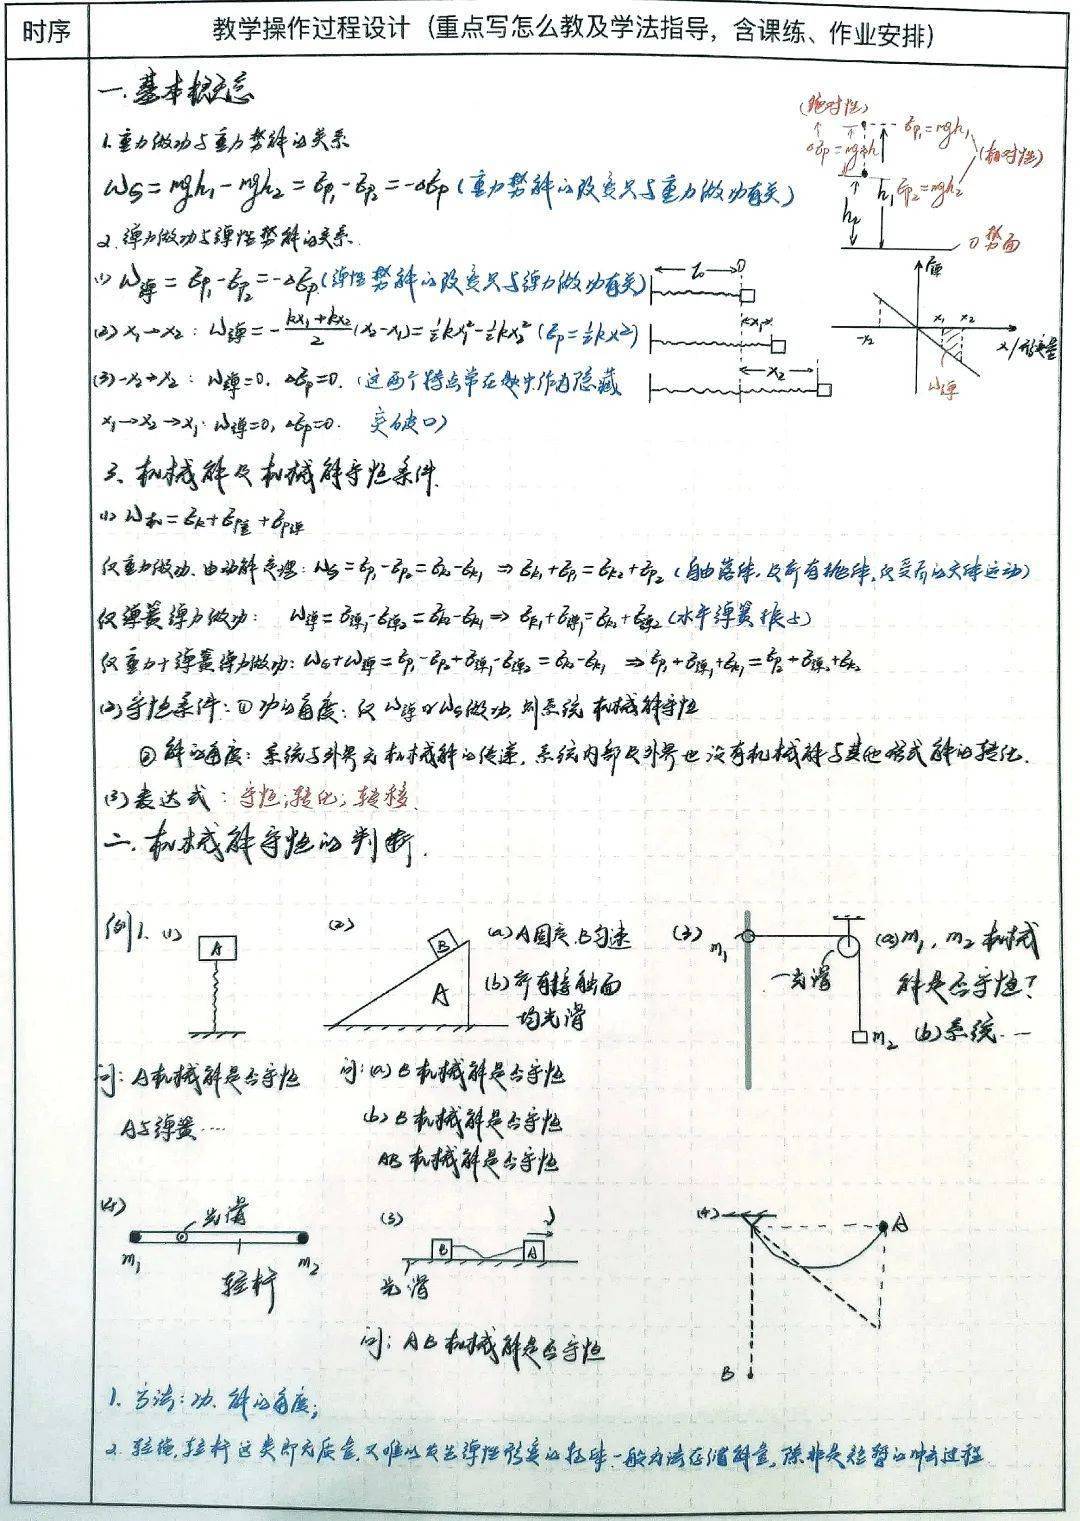 时序
教学操作过程设计（重点写怎么教及学法指导，含课练、作业安排）
一.基本概念
1.重力做功与重力势能的关系
W_G=mgh₁-mgh₂=Ep₁-Ep₂=-ΔEp（重力势能的改变只与重力做功有关）
(绝对性)
ΔEp=mgh
Ep₁=mgh₁
(相对性)
Ep₂=mgh₂
h₁
h₂
0势面
2.弹力做功与弹性势能的关系.
(1) W弹=Ep₁-Ep₂=-ΔEp(弹性势能的改变只与弹力做功有关)
(2) x₁→x₂：W弹=-(kx₁+kx₂)/2(x₂-x₁)=½kx₁²-½kx₂²（Ep=½kx²）
(3) -x₂→x₂：W弹=0，ΔEp=0.（这两个特点常在题中作为隐藏
x₁→x₂→x₁：W弹=0，ΔEp=0. 突破口）
l₀
0
x₁
x₂
F弹
-x₂
x₁ x₂
x/形变量
W弹
二、机械能及机械能守恒条件.
(1) W机=Ek+Ep重+Ep弹
仅重力做功、由动能定理：W_G=Ep₁-Ep₂=Ek₂-Ek₁ ⇒ Ek₁+Ep₁=Ek₂+Ep₂（自由落体，及所有抛体，仅受的天体运动）
仅弹簧弹力做功： W弹=E弹₁-E弹₂=Ek₂-Ek₁⇒ Ek₁+E弹₁=Ek₂+E弹₂（水平弹簧振子）
仅重力+弹簧弹力做功：W_G+W弹=Ep₁-Ep₂+E弹₁-E弹₂=Ek₂-Ek₁ ⇒Ep₁+E弹₁+Ek₁=Ep₂+E弹₂+Ek₂
(2)守恒条件：①功的角度：仅W弹或W_G做功，则系统机械能守恒
②能的角度：系统与外界无机械能的传递，系统内部及外界也没有机械能与其他形式能的转化.
(3)表达式：守恒;转化;转移.
二.机械能守恒的判断.
例1.(1)
A
(2)
B
A
(a)A固定、B匀速
(b)所有接触面
均光滑
(3)
m₁
光滑
m₂
(a)m₁，m₂机械
能是否守恒？
(b)系统…
问：A机械能是否守恒
A与弹簧…
问：(a) B机械能是否守恒
(b) B机械能是否守恒
AB机械能是否守恒
(4)
光滑
m₁
m₂
轻杆
(3)
B
A
光滑
问：AB机械能是否守恒
(4)
A
B
1. 方法：功、能的角度;
2. 轻绳，轻杆这类即无质量，又难以发生弹性形变的物体，一般无法存储能量，除非是短暂的冲击过程